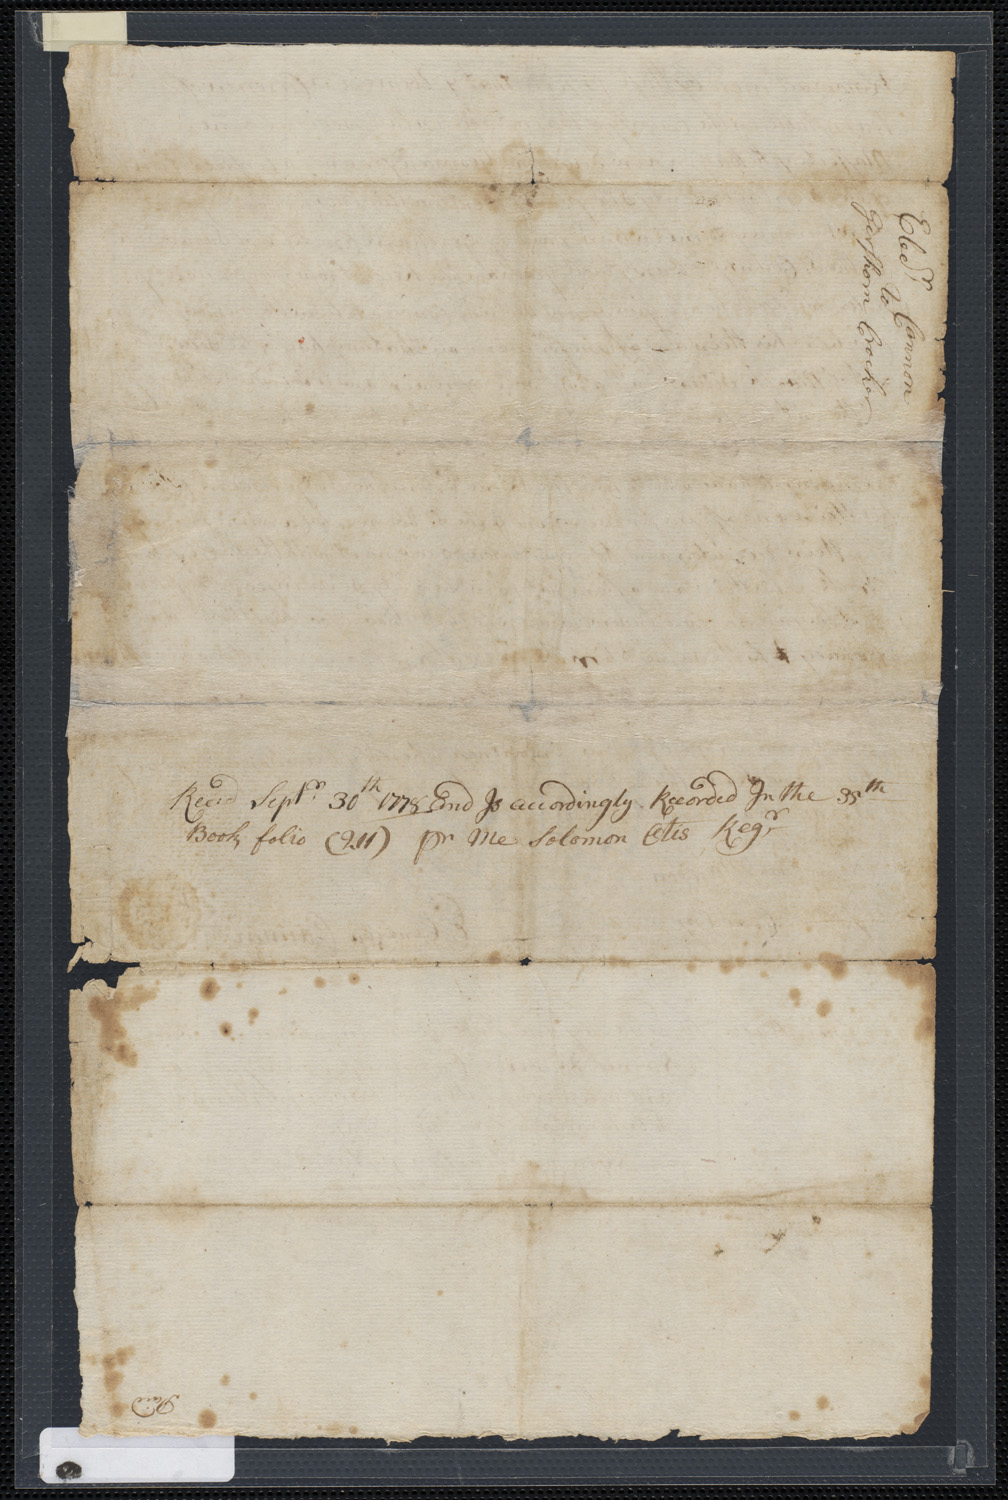 Ebedr Cannon
to
Gershom Crocker
Recd Septr 30th 1778 and Is accordingly Recorded In the 35th
Book folio (211) pr Me Solomon Otis Regr
Paid